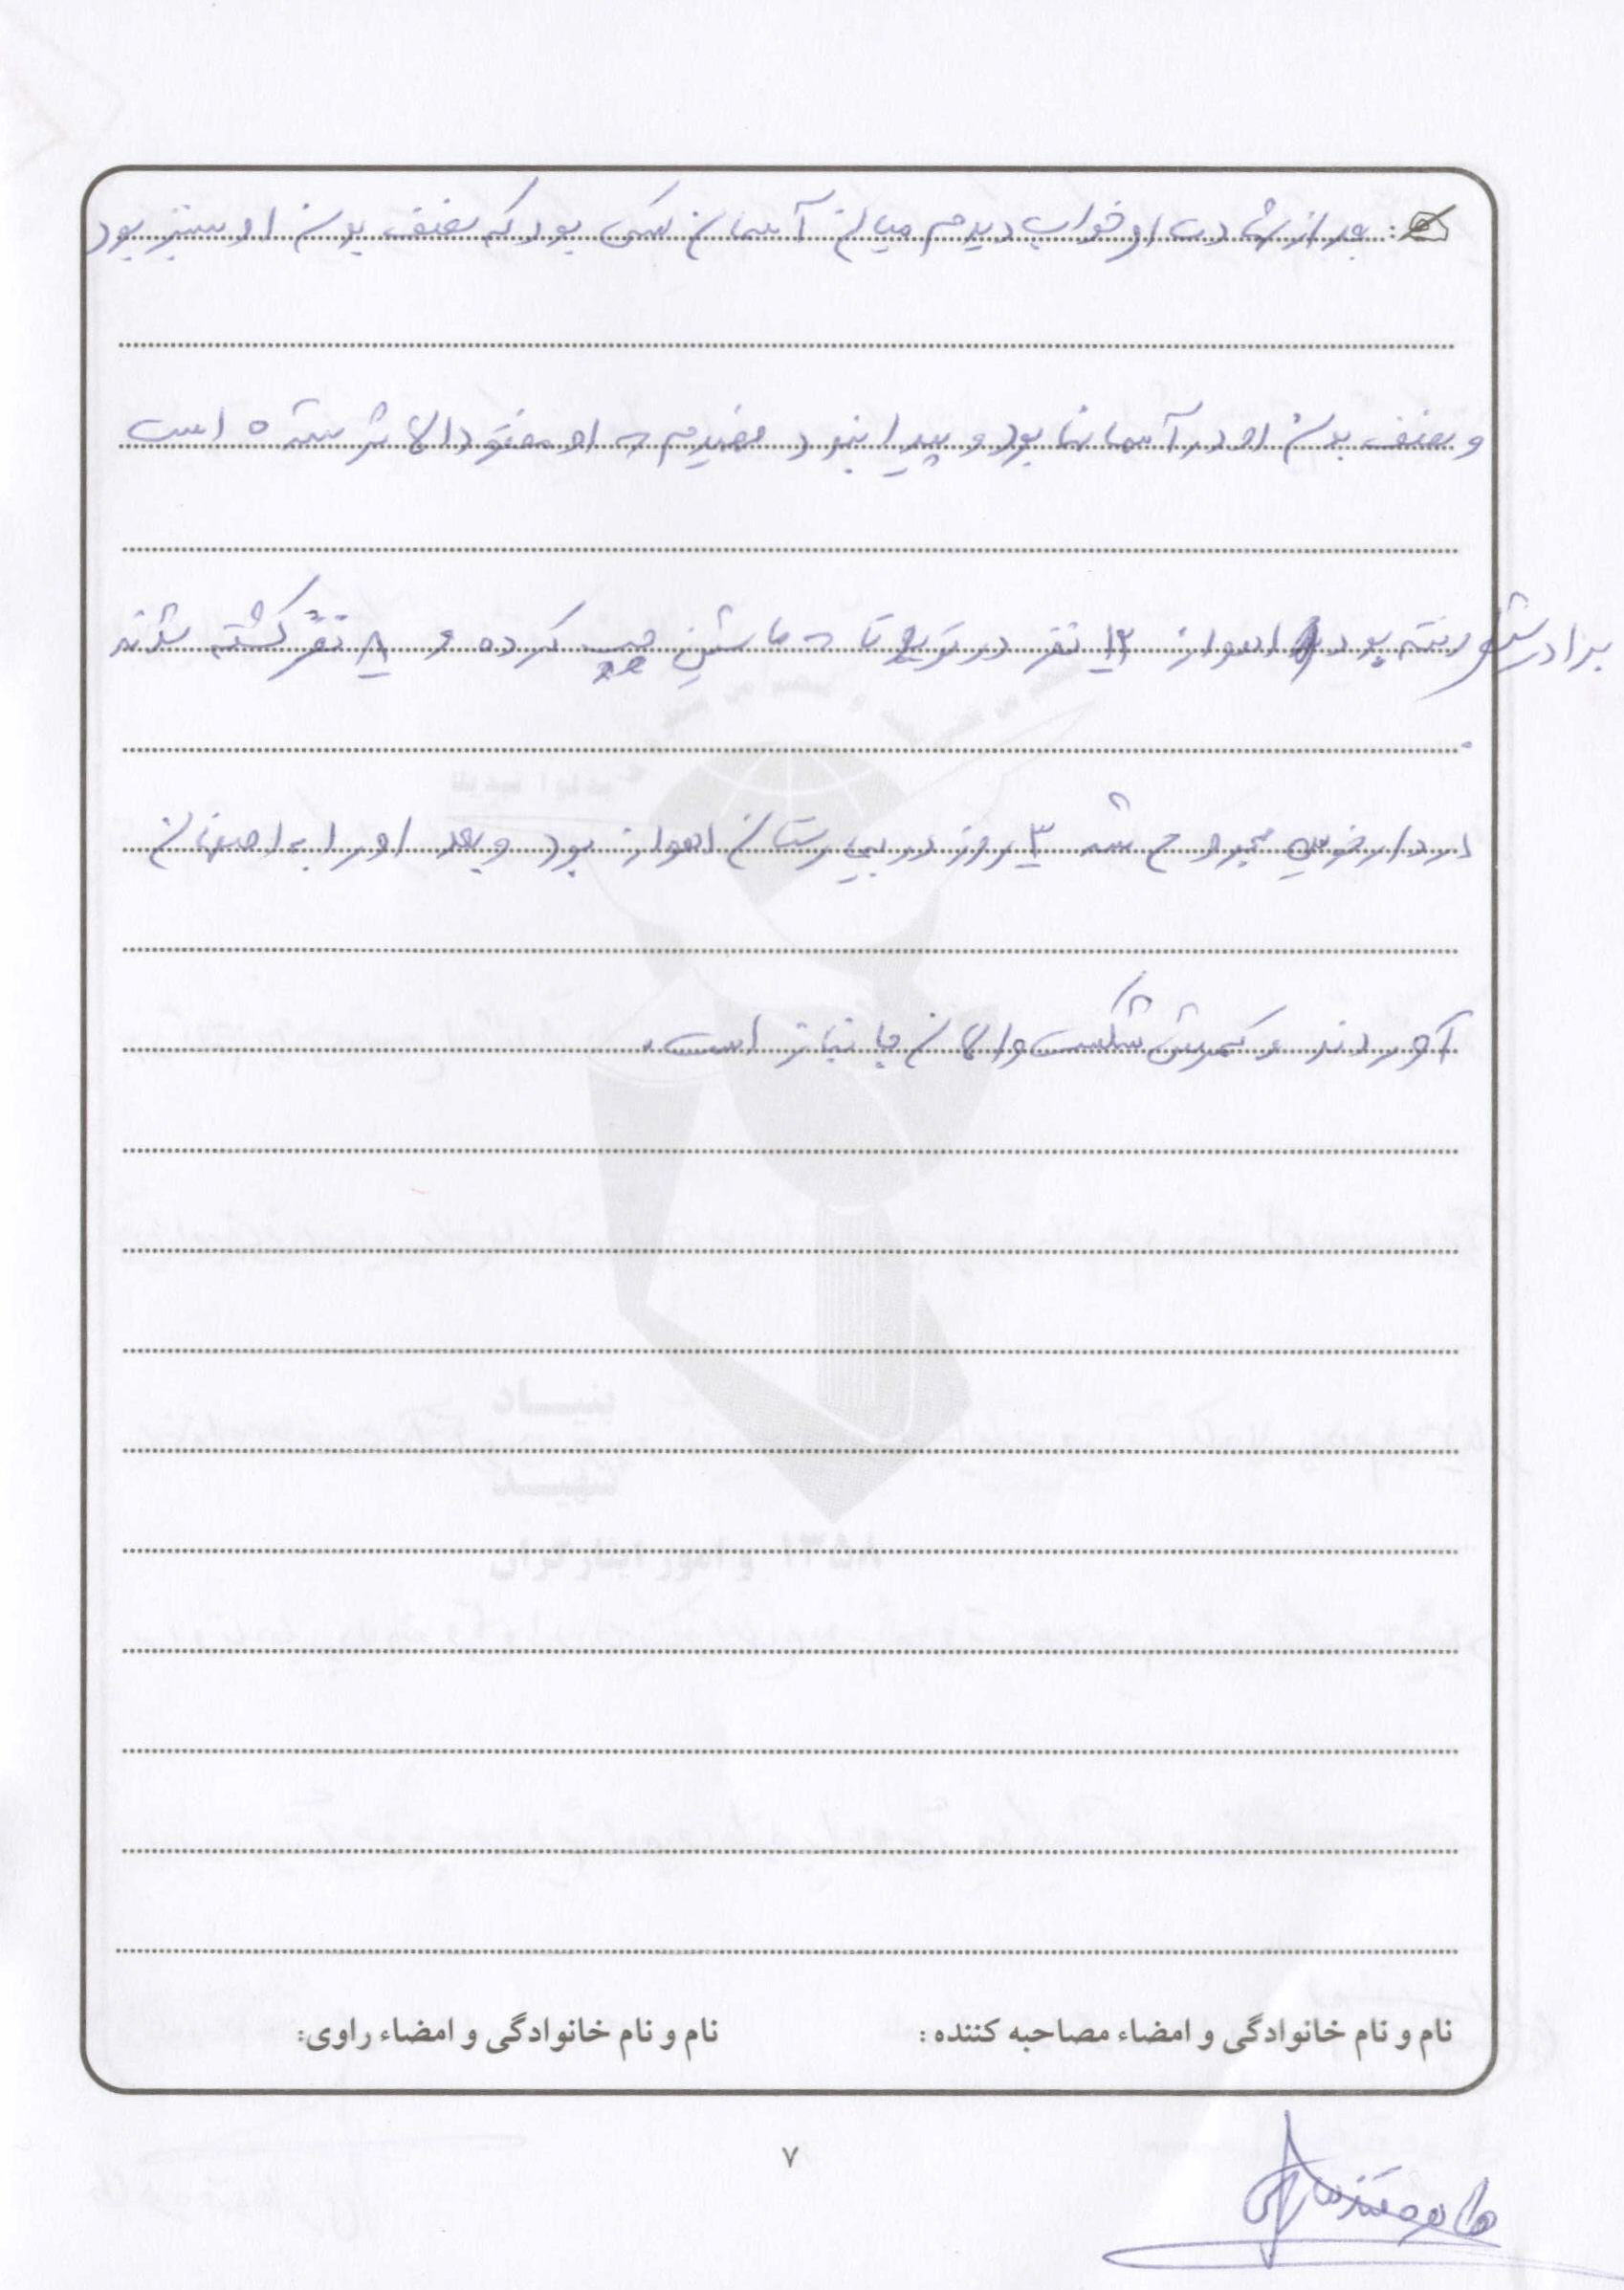 بعد از شهادت او خواب دیدم میان آسمان کسی بود که نصف بدن او سبز بود
و نصف بدن او در آسمانها بود و پیدا نبود فهمیدم که او مقامی والا داشته است
برادرش رفته بود اهواز ۱۳ نفر در تویوتا که ماشین چپ کرده و ۸ نفر کشته شدند
.
مجروح شد ۳ روز در بیمارستان اهواز بود و بعد او را به اصفهان
آوردند و کمرش شکست و الان جانباز است.
نام و نام خانوادگی و امضاء مصاحبه کننده :
نام و نام خانوادگی و امضاء راوی:
۷
بنیاد
شهید
و امور ایثارگران ۱۳۵۸